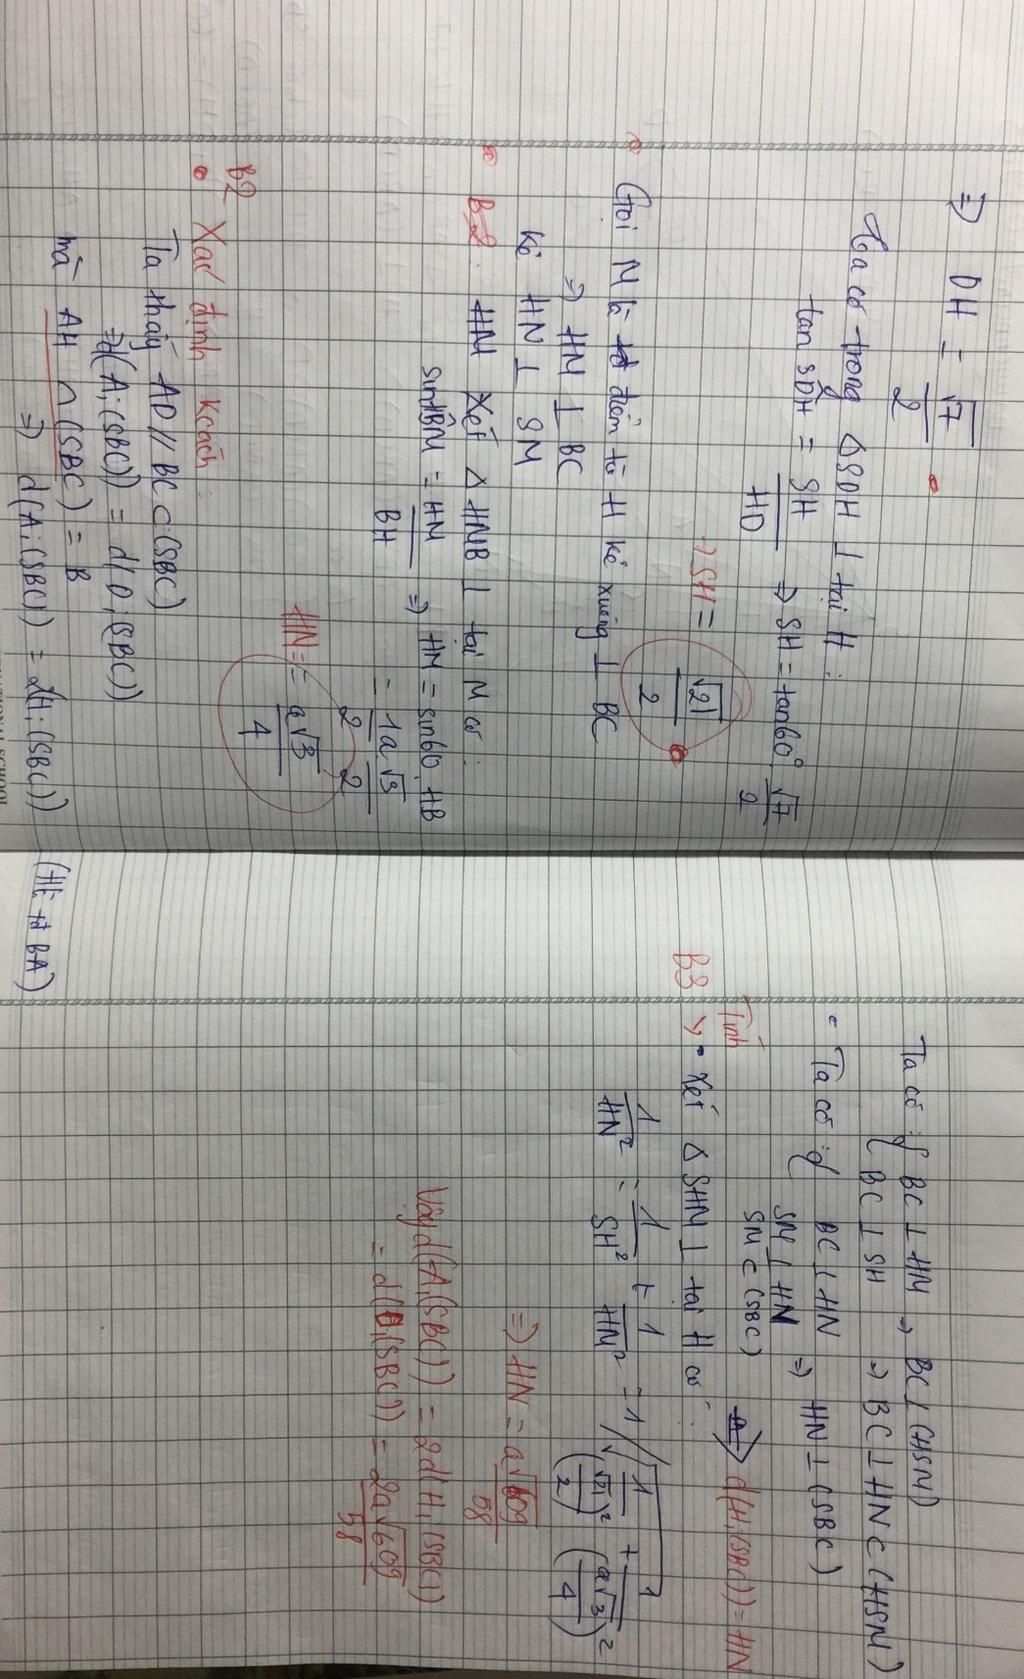 ⇒ DH = √7/2
Ta có trong Δ SDH ⊥ tại H :
tan SDH = SH/HD ⇒ SH = tan60°. √7/2
→ SH = √21/2
Gọi M là điểm từ H kẻ xuống ⊥ BC
⇒ HM ⊥ BC
Kẻ HN ⊥ SM
HM Xét Δ HMB ⊥ tại M có :
sin HBM = HM/BH ⇒ HM = sin60. HB
= 1/2 a√3/2
HM = a√3/4
B2
Xác định Kcách :
Ta thấy AD // BC ⊂ (SBC)
⇒ d(A; (SBC)) = d(D; (SBC))
mà AH ∩ (SBC) = B
⇒ d(A; (SBC)) = 2d(H; (SBC))
Ta có : { BC ⊥ HM → BC ⊥ (HSM)
BC ⊥ SH ⇒ BC ⊥ HN ⊂ (HSM)
Ta có : { BC ⊥ HN
SM ⊥ HN ⇒ HN ⊥ (SBC)
SM ⊂ (SBC)
⇒ d(H, (SBC)) = HN
B3
Tính
Xét Δ SHM ⊥ tại H có :
1/HN² = 1/SH² + 1/HM² = 1/√(1/(√21/2)² + 1/(a√3/4)²)
⇒ HN = a√609/58
Vậy d(A, (SBC)) = 2d(H, (SBC))
= d(D, (SBC)) = 2a√609/58